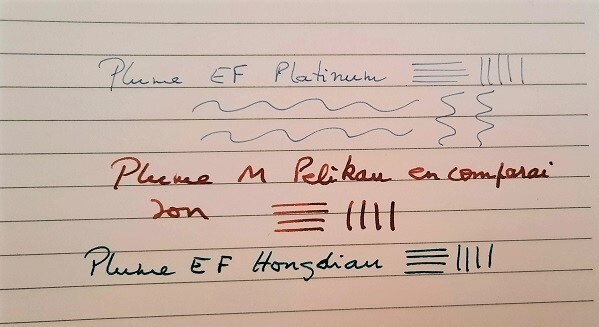 Plume EF Platinum
Plume M Pelikan en comparai
son
Plume EF Hongdian